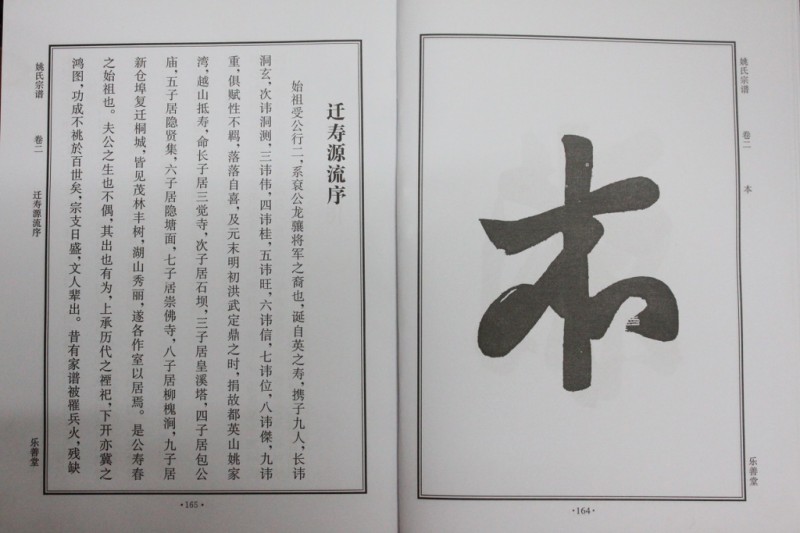 姚氏宗谱
卷二
本
本
乐善堂
·164·
迁寿源流序
始祖受公行二，系裒公龙骧将军之裔也，诞自英之寿，携子九人，长讳
洞玄，次讳洞测，三讳伟，四讳桂，五讳旺，六讳信，七讳位，八讳傑，九讳
重，俱赋性不羁，落落自喜，及元末明初洪武定鼎之时，捐故都英山姚家
湾，越山抵寿，命长子居三觉寺，次子居石坝，三子居皇溪塔，四子居包公
庙，五子居隐贤集，六子居隐塘面，七子居崇佛寺，八子居柳槐涧，九子居
新仓埠复迁桐城，皆见茂林丰树，湖山秀丽，遂各作室以居焉。是公寿春
之始祖也。夫公之生也不偶，其出也有为，上承历代之禋祀，下开亦冀之
鸿图，功成不祧於百世矣，宗支日盛，文人辈出。昔有家谱被罹兵火，残缺
姚氏宗谱
卷二
迁寿源流序
乐善堂
·165·